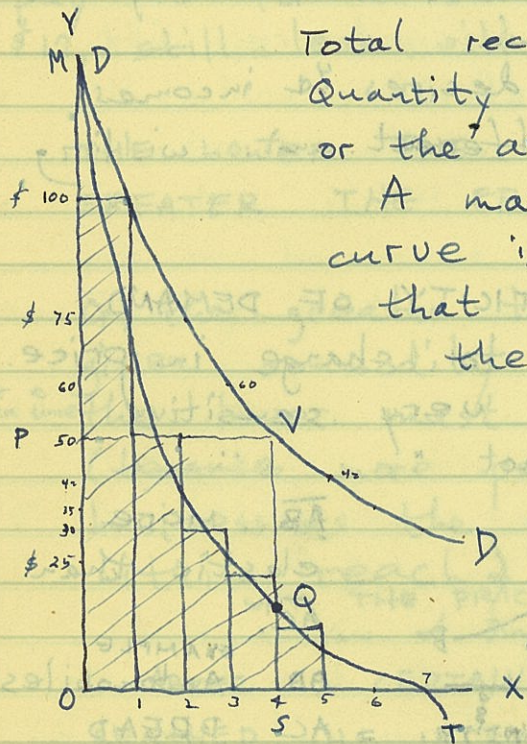 Y
M D
Total rec
Quantity
or the a
A ma
curve i
that
the
$ 100
$ 75
60
60
P 50
V
42
42
35
30
$ 25
D
Q
O 1 2 3 4 5 6 7 X
S
T